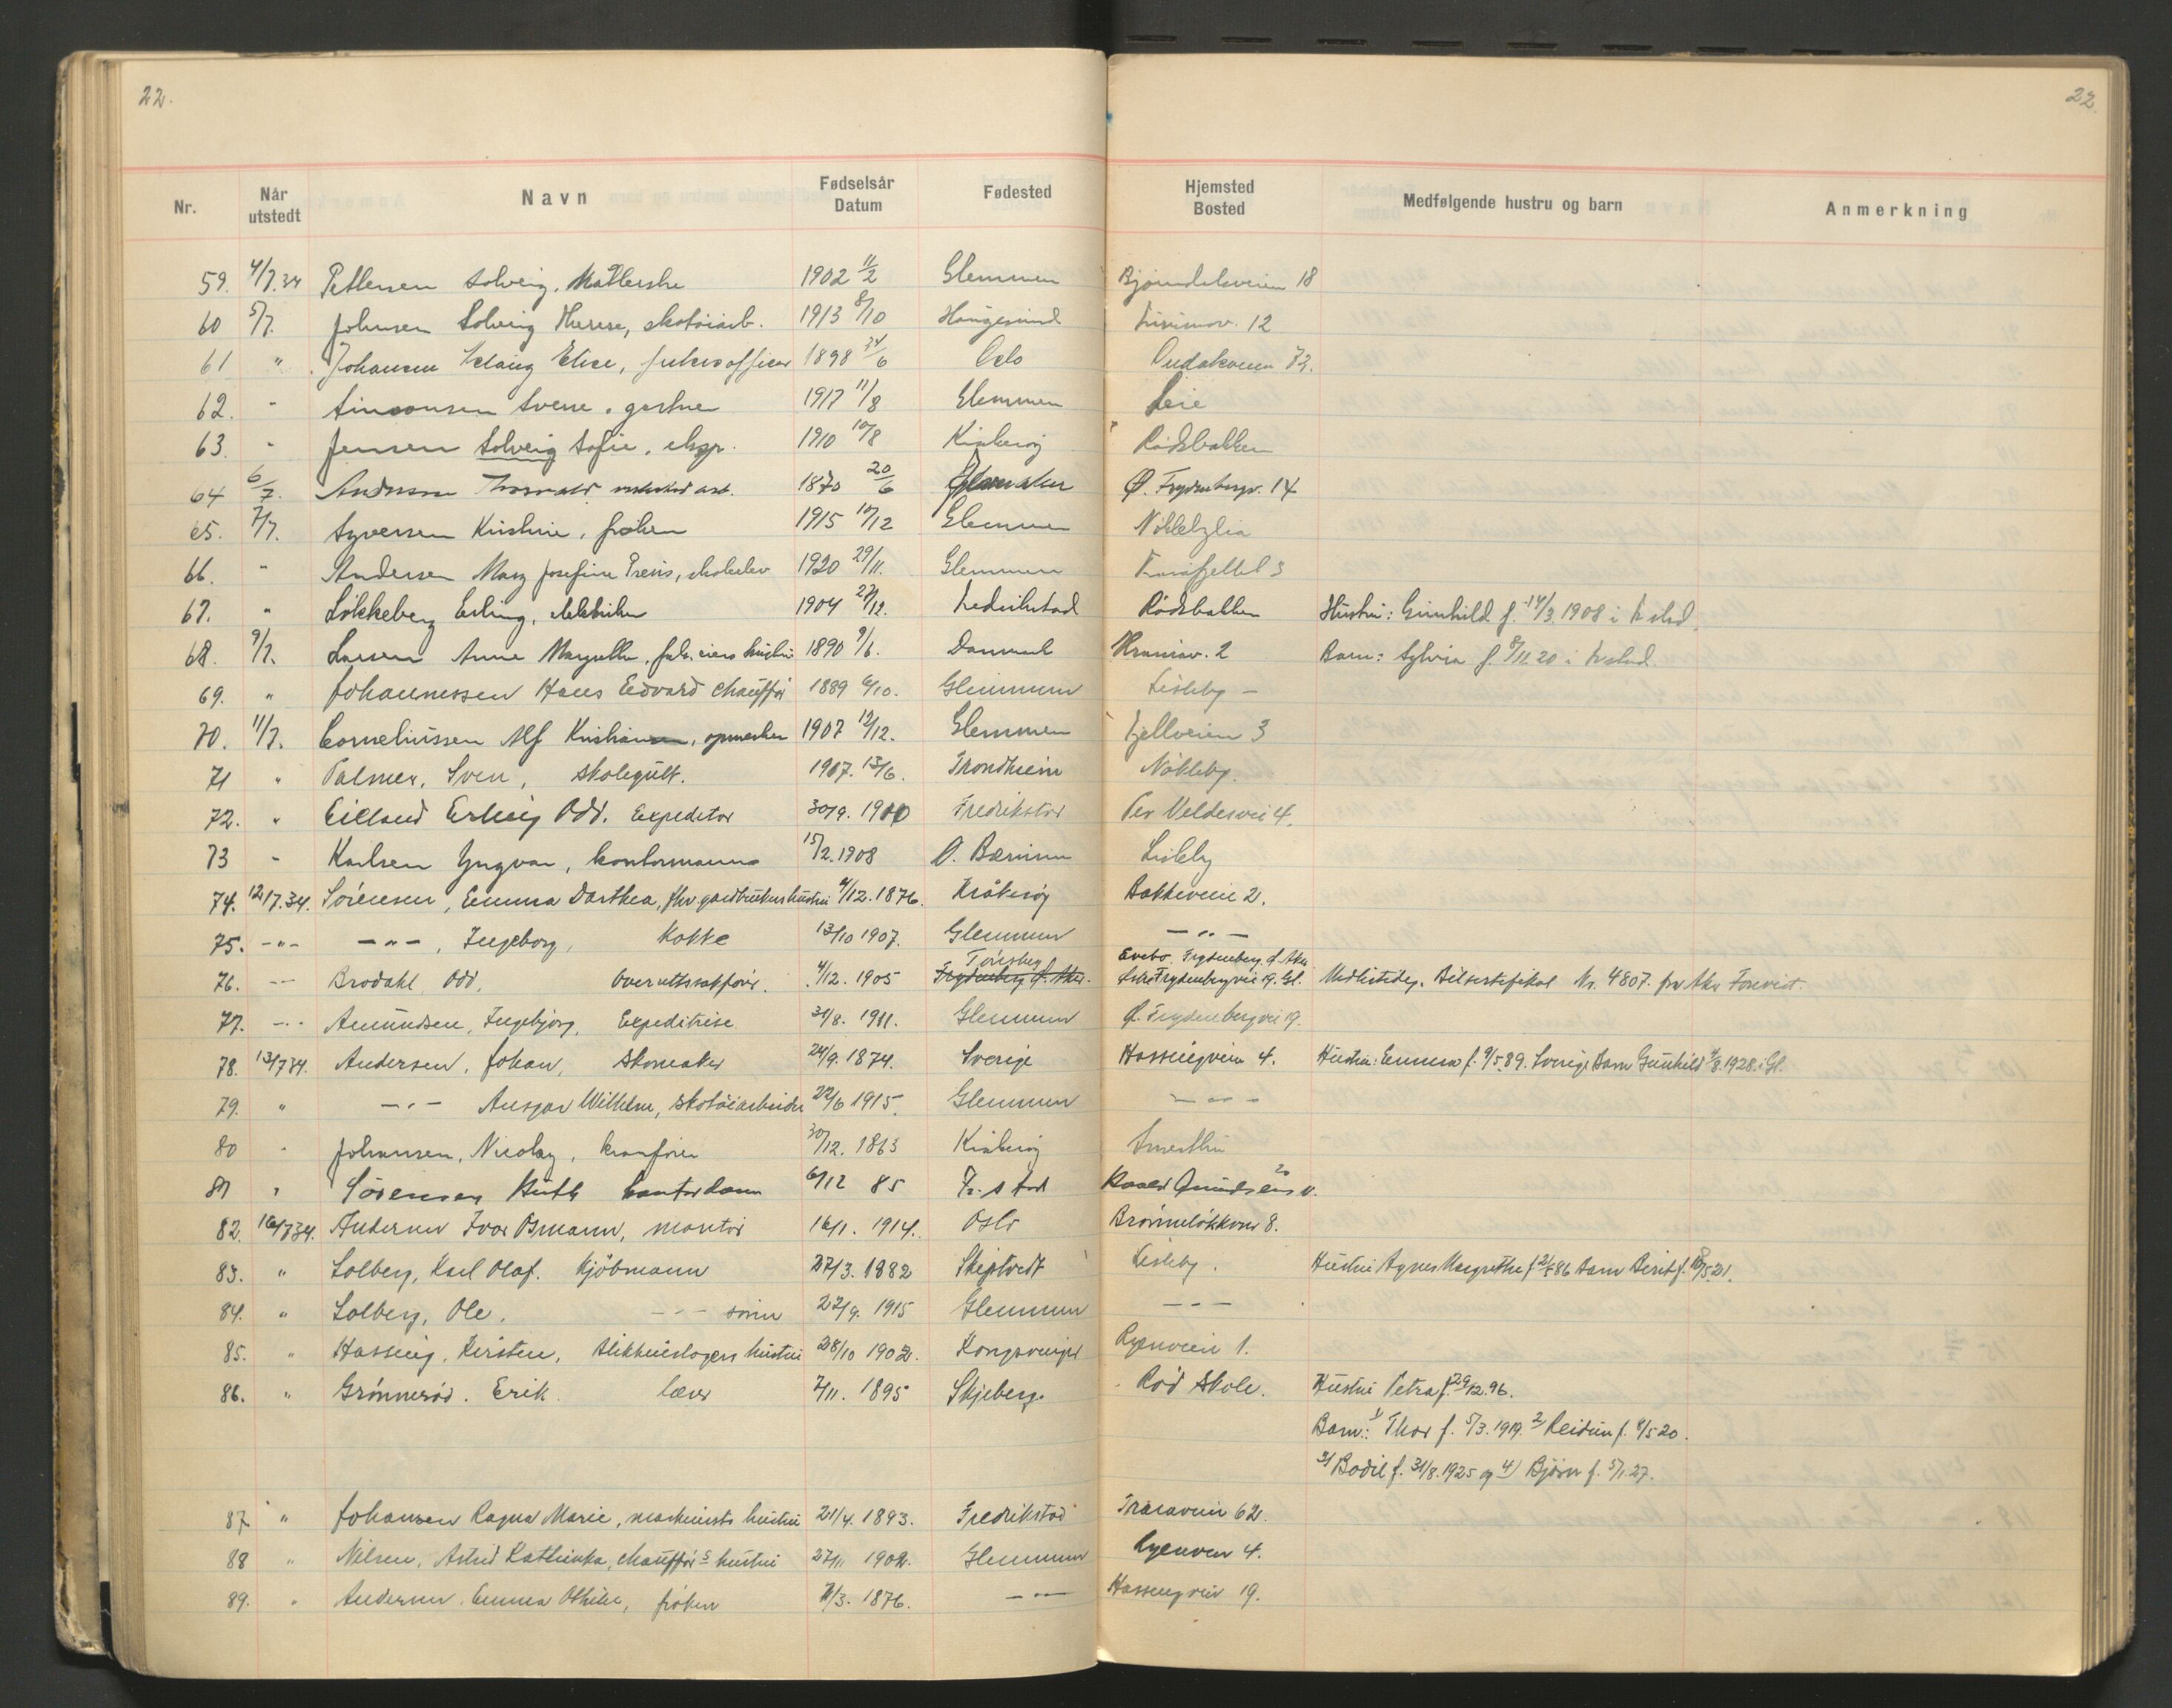 22.
22.
Nr. Når utstedt Navn Fødselsår Datum Fødested Hjemsted Bosted Medfølgende hustru og barn Anmerkning
59. 4/7.34 Pettersen Solveig, 1902 11/2 Glemmen 18
60 5/7. Johnsen Solveig Therese, skotöiarb. 1913 8/10 Haugesund 12
61 " Johansen Elise, 1898 24/6 Oslo
62. " Simonsen Sverre, gartner 1917 11/8 Glemmen Leie
63. " Jensen Solveig Sofie, eksp. 1910 10/8 Kråkeröy Rödsbakken
64 6/7. Andersen Thorvald 1870 20/6 Ø. Frydenbergv. 14
65. 7/7. Syversen Kristine, fröken 1915 10/12 Glemmen
66. " Andersen Mary Josefine skoleelev 1920 29/11. Glemmen Traråfjellet 3
67. " Lökkeberg Erling, elektriker 1904 27/12. Fredrikstad Rödsbakken Hustru: Gunhild f. 14/3. 1908 i Fr.stad.
68. 9/7. Larsen Anne Margrethe, hustru 1890 9/6. Danmark 2 Barn: Sylvia f. 8/11.20 i Fr.stad.
69. " Johannessen Hans Edvard chaufför 1889 6/10. Glemmen Lisleby -
70. 11/7. Corneliussen Alf Kristian, opmerker 1907 12/12. Glemmen Fjellveien 3
71 " Palmer, Sven, skolegutt. 1917. 13/6. Trondheim Nökleby.
72. " Eilland Erling Odd. Expeditör 30/9. 1910 Fredrikstad Per Veldesvei 4.
73 " Karlsen Yngvar, kontormann 15/2. 1908 Ö. Bærum Lisleby
74. 12/7.34. Sörensen, Emma Dorthea, fhv. gardbrukers hustru 4/12. 1876. Kråkeröy Bakkeveien 2.
75. -"- -"-, Ingeborg, Kokke 13/10 1907. Glemmen -"-
76. -"- Brodahl, Odd, Overrettssakförer. 4/12. 1905 Torsberg Frydenberg Ø. Aker. Evebo. Frydenberg Ø. Aker Frydenbergvei 19. Gl. Midlertidig. Bilsertifikat Nr. 4807. fra Aker Forevist.
77. -"- Amundsen, Ingebjörg, Expeditrise 31/8. 1911. Glemmen Ø. Frydenbergvei 19.
78. 13/7 34. Andersen, Johan, Skomaker 24/9. 1874. Sverige Hassingveien 4. Hustru: Emma f. 9/5.89. Sverige Barn Gunhild 4/8.1928. i Gl.
79. " -"- Ansgar Wilhelm, skotöiarbeider 22/6 1915. Glemmen -"-
80 " Johansen, Nicolay, kranförer 30/12. 1863 Kråkeröy Smertu
81 " Sörensen Ruth kontordame 6/12 85 Fr.stad Roald Amundsens v. 20
82. 16/7 34. Andersen Ivar Osmann, montör 16/1. 1914. Oslo Brönnelökkvn 8.
83. " Solberg, Karl Olaf. Kjöbmann 27/3. 1882 Skiptvedt Lisleby. Hustru Agnes Margrethe f. 86 Barn Berit f. 18/5 21.
84. " Solberg, Ole. -"- sönn 22/9. 1915 Glemmen -"-
85. " Hassing, Kirsten, blikkenslagers hustru 28/10 1902. Kongsvinger Ryenveien 1.
86. " Grönneröd. Erik. lærer 7/11. 1895 Skjeberg. Röd Skole. Hustru Petra f. 29/12.96.
Barn: 1/ Thor f. 5/3. 1919. 2/ Reidun f. 8/5 20.
3/ Bodil f. 31/8. 1925 og 4/ Björn f. 5/1. 27.
87 " Johansen Ragna Marie, maskinists hustru 21/4. 1893. Fredrikstad Traraveien 62.
88 " Nilsen, Astrid Kathinka, chaufför's hustru 27/11 1902. Glemmen Ryenven 4.
89. " Andersen Emma Othilie, fröken 7/3. 1876. -"- Hassingveien 19.